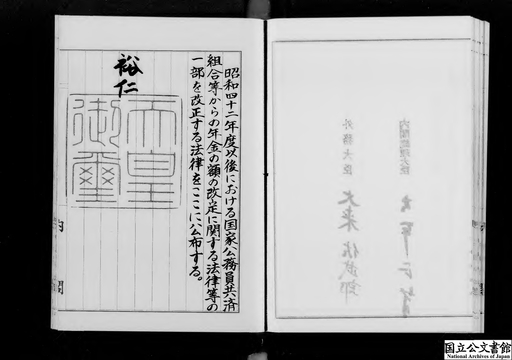 昭和四十二年度以後における国家公務員共済
組合等からの年金の額の改定に関する法律等の
一部を改正する法律をここに公布する。
裕仁
天皇
御璽
内閣
外務大臣
大来佐武郎
国立公文書館
National Archives of Japan